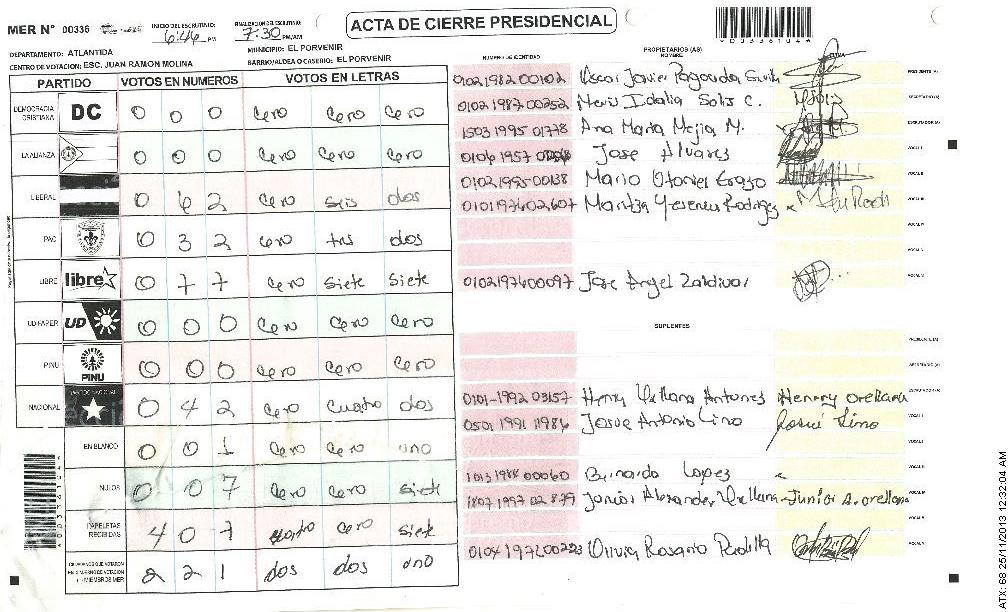 MER Nº 00336
INICIO DEL ESCRUTINIO: 6:46 PM
FINALIZACION DEL ESCRUTINIO: 7:30 PM/AM
ACTA DE CIERRE PRESIDENCIAL
DEPARTAMENTO: ATLANTIDA
MUNICIPIO: EL PORVENIR
CENTRO DE VOTACION: ESC. JUAN RAMON MOLINA
BARRIO/ALDEA O CASERIO: EL PORVENIR
PARTIDO VOTOS EN NUMEROS VOTOS EN LETRAS
DEMOCRACIA CRISTIANA DC 0 0 0 Cero Cero Cero
LA ALIANZA 0 0 0 Cero Cero Cero
LIBERAL 0 6 2 Cero seis dos
PAC 0 3 2 cero tres dos
LIBRE libre 0 7 7 Cero Siete Siete
UD-FAPER UD 0 0 0 Cero Cero Cero
PINU PINU 0 0 0 Cero Cero Cero
NACIONAL 0 4 2 Cero Cuatro dos
EN BLANCO 0 0 1 Cero Cero uno
NULOS 0 0 7 Cero Cero siete
PAPELETAS RECIBIDAS 4 0 7 cuatro Cero siete
CIUDADANOS QUE VOTARON 2 2 1 dos dos uno
NUMERO DE IDENTIDAD
PROPIETARIOS (AS)
NOMBRE
FIRMA
0102 1982 00102 Oscar Javier
PRESIDENTE (A)
0102 1987 00252 Idalia Solis C.
SECRETARIO (A)
1503 1995 01778 Ana Maria Mejia M.
ESCRUTADOR (A)
0106 1957 Jose Alvares
VOCAL I
0102 1995 00138 Mario Otoniel Erazo
VOCAL II
0101197602607 Maritza Yesenia Rodriguez
VOCAL III
VOCAL IV
VOCAL V
0102197600097 Jose Angel Zaldivar
SUPLENTES
PRESIDENTE (A)
SECRETARIO (A)
0101-1992 03157 Henry Orellana Antunes Henrry orellana
ESCRUTADOR (A)
0501 1991 11986 Josue Antonio Lino Josué Lino
VOCAL I
VOCAL II
00060 Bernardo Lopez
VOCAL III
1807 1997 Junior Alexander Orellana Junior A. orellana
VOCAL IV
VOCAL V
0104 1972 00223 Rosario Padilla
VOCAL VI
ATX: 68 25/11/2013 12:32:04 AM